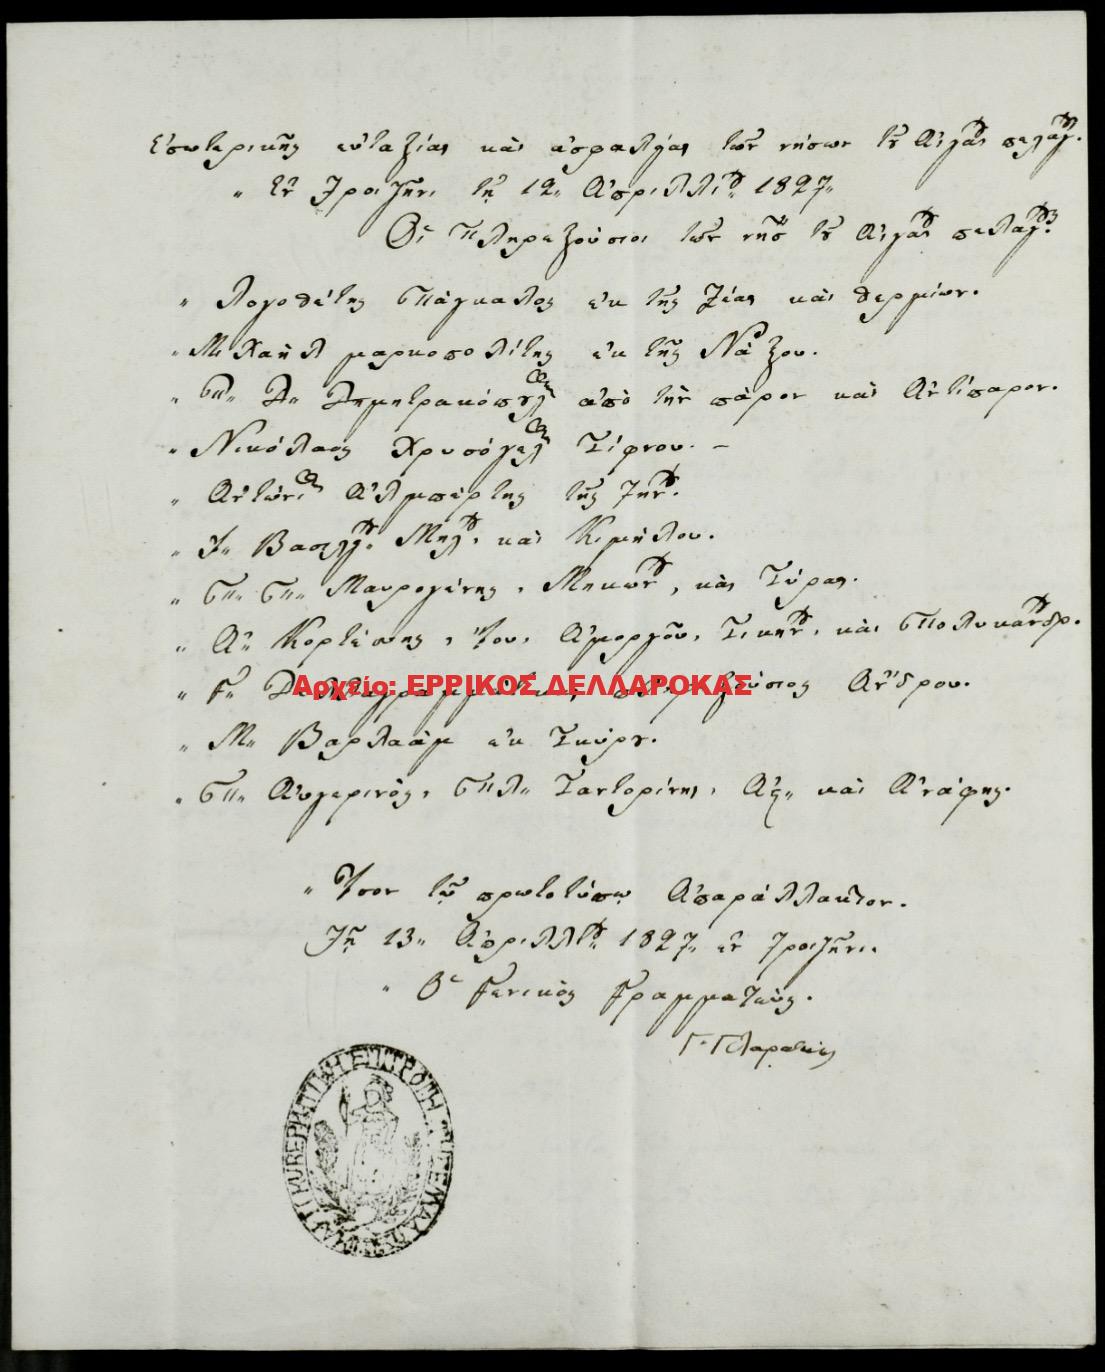 ἐσωτερικῆς εὐταξίας καὶ ἀσφαλείας τῶν νήσων τοῦ Αἰγαίου πελάγους.
„ Ἐν Τροιζῆνι τῇ 12„ Ἀπριλλίου 1827„
Οἱ Πληρεξούσιοι τῶν νήσ τοῦ Αἰγαίου πελάγους
„ Λογοθέτης Πάγκαλος ἐκ τῆς Ζέας καὶ Θερμίων.
„ Μιχαὴλ μαρκοπολίτης ἐκ τῆς Νάξου.
„ Π„ Δ„ Δημητρακόπουλος ἀπὸ τὴν πάρον καὶ Ἀντίπαρον.
„ Νικόλαος Χρυσόγελος Σίφνου. –
„ Ἀντώνιος Ἀλμπέρτης τῆς Τήνου.
„ Ἰ„ Βασιλείου. Μήλου, καὶ Κιμήλου.
„ Π„ Π„ Μαυρογένης, Μηκώνου, καὶ Σύρας.
„ Α„ Κορτέσης, Ἴου, Ἀμοργοῦ, Σικήνου, καὶ Πολυκάνδρ.
„ Γ„ Δ„ πληρεξούσιος Ἄνδρου.
Αρχείο: ΕΡΡΙΚΟΣ ΔΕΛΛΑΡΟΚΑΣ
„ Μ„ Βαρλαὰμ ἐκ Σκύρου.
„ Π„ Αὐγερινὸς, Πλ„ Σαντορίνης, Ἀς„ καὶ Ἀνάφης.
„ Ἴσον τῷ πρωτοτύπῳ Ἀπαράλλακτον.
Τῇ 13„ Ἀπριλλίου 1827„ ἐν Τροιζῆνι.
„ Ὁ Γενικὸς Γραμματεὺς.
Γ. Γλαράκης